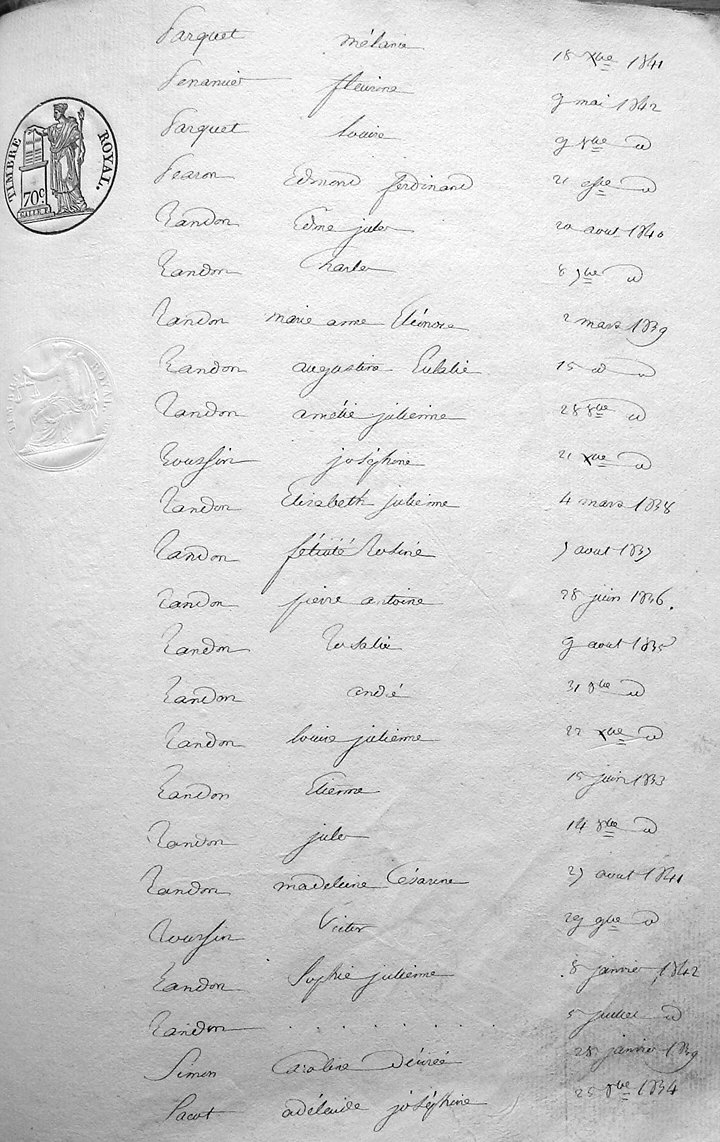 Parquet mélanie 18 Xbre 1841
fleurine 9 mai 1842
Parquet louise 9 8bre d
Pearon Edmond ferdinand 21 d
TIMBRE ROYAL.
70c
Randon Edme jules 20 aout 1840
Randon Charles 8 7bre d
Randon marie anne Eléonore 2 mars 1839
Randon augustine Eulalie 15 d d
Randon amélie julienne 28 8bre d
Roussin joséphine 21 Xbre d
Randon Elisabeth julienne 4 mars 1838
Randon félicité Rosine 7 aout 1837
Randon pierre antoine 28 juin 1836.
Randon Rosalie 9 aout 1835
Randon andré 31 8bre d
Randon louise julienne 22 Xbre d
Randon Etienne 15 juin 1833
Randon jules 14 8bre d
Randon madeleine Césarine 27 aout 1841
Roussin Victor 29 9bre d
Randon Sophie julienne 8 janvier 1842
Randon . . . . . . . 5 juillet d
Simon Caroline Désirée 28 janvier 1839
Sacot adélaide joséphine 25 8bre 1834